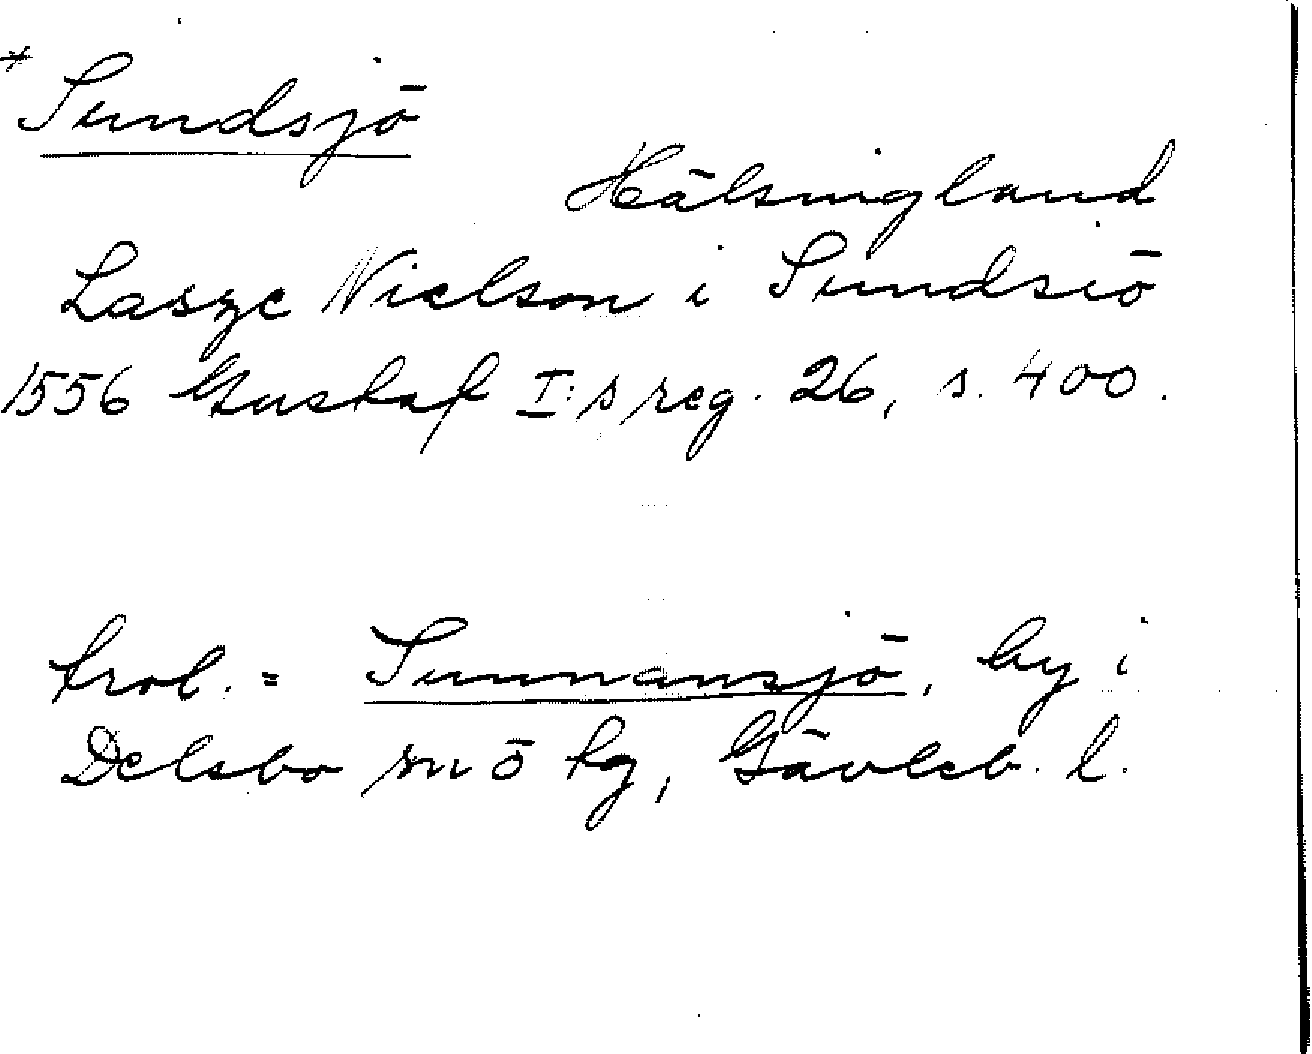 * Sundsjö
Hälsingland
Lasze Nielson i Sundsiö
1556 Gustaf I:s reg. 26, s. 400.
trol. = Sunnansjö, by i
Delsbo sn o kg, Gävleb. l.